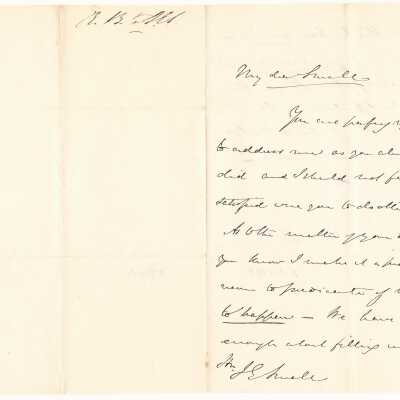 My dear Small
You are perfectly
to address me as you al
did and I should not fe
satisfied were you to do oth
As to the matter of your
you know I make it a po
never to predicate of
to happen – We have
enough about filling
Hon J E Small